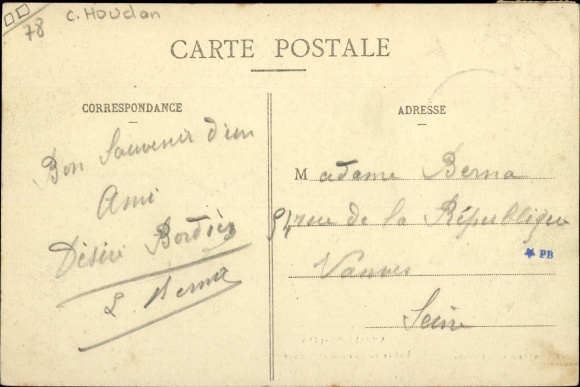 78 C. Houdan
CARTE POSTALE
CORRESPONDANCE
Bon Souvenir d'un
Ami
Désiré
L. Berna
ADRESSE
Madame Berna
94 rue de la République
Vanves
Seine
PB